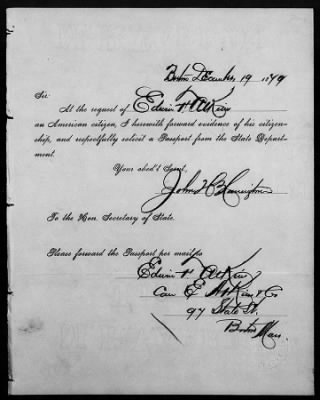 Boston December 19 1879
Sir:
At the request of Edwin F. Atkins
an American citizen, I herewith forward evidence of his citizen-
ship, and respectfully solicit a Passport from the State Depart-
ment.
Your obed't Serv't,
John H.
To the Hon. Secretary of State.
Please forward the Passport per mail to
Edwin F. Atkins
Care E Atkins & Co
97 State St.
Boston Mass.